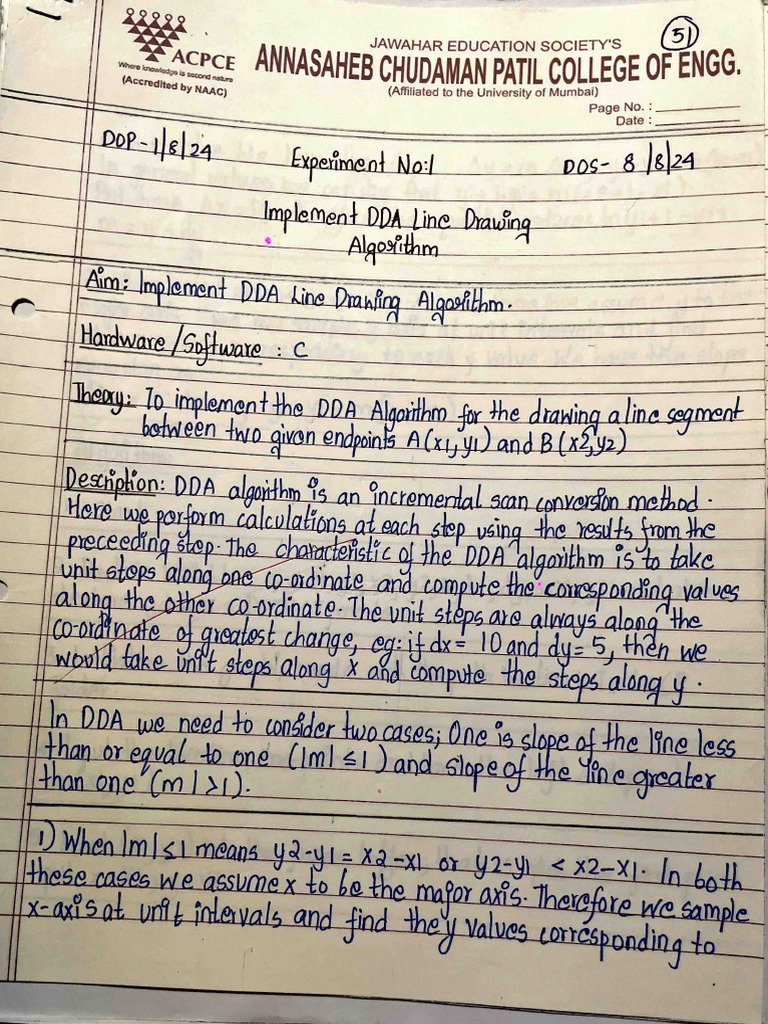 51
JAWAHAR EDUCATION SOCIETY'S
ACPCE
ANNASAHEB CHUDAMAN PATIL COLLEGE OF ENGG.
Where knowledge is second nature
(Accredited by NAAC)
(Affiliated to the University of Mumbai)
Page No. :
Date :
DOP-1/8/24 Experiment No:1 DOS- 8/8/24
Implement DDA Line Drawing
Algorithm
Aim: Implement DDA Line Drawing Algorithm.
Hardware/Software : C
Theory: To implement the DDA Algorithm for the drawing a line segment
between two given endpoints A(x1,y1) and B(x2,y2)
Description: DDA algorithm is an incremental scan conversion method.
Here we perform calculations at each step using the results from the
preceeding step. The characteristic of the DDA algorithm is to take
unit steps along one co-ordinate and compute the corresponding values
along the other co-ordinate. The unit steps are always along the
co-ordinate of greatest change, eg: if dx= 10 and dy= 5, then we
would take unit steps along x and compute the steps along y.
In DDA we need to consider two cases; One is slope of the line less
than or equal to one (|m| ≤1) and slope of the line greater
than one (m|>1).
1) When |m|≤1 means y2-y1 = x2-x1 or y2-y1 < x2-x1. In both
these cases we assume x to be the major axis. Therefore we sample
x-axis at unit intervals and find the y values corresponding to